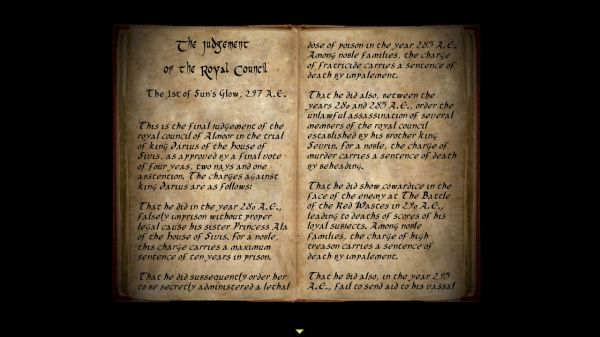 The Judgement
of the Royal Council
The 1st of Sun's Glow, 297 A.E.
This is the final judgement of the
royal council of Almoor in the trial
of king Darius of the house of
Sivis, as approved by a final vote
of four yeas, two nays and one
abstention. The charges against
king Darius are as follows:
That he did in the year 280 A.E.,
falsely imprison without proper
legal cause his sister Princess Ala
of the house of Sivis. For a noble,
this charge carries a maximum
sentence of ten years in prison.
That he did subsequently order her
to be secretly administered a lethal
dose of poison in the year 285 A.E.
Among noble families, the charge
of fratricide carries a sentence of
death by impalement.
That he did also, between the
years 280 and 285 A.E., order the
unlawful assassination of several
members of the royal council
established by his brother king
Sevrin. For a noble, the charge of
murder carries a sentence of death
by beheading.
That he did show cowardice in the
face of the enemy at The Battle
of the Red Wastes in A.E.,
leading to deaths of scores of his
loyal subjects. Among noble
families, the charge of high
treason carries a sentence of
death by impalement.
That he did also, in the year 295
A.E., fail to send aid to his vassal